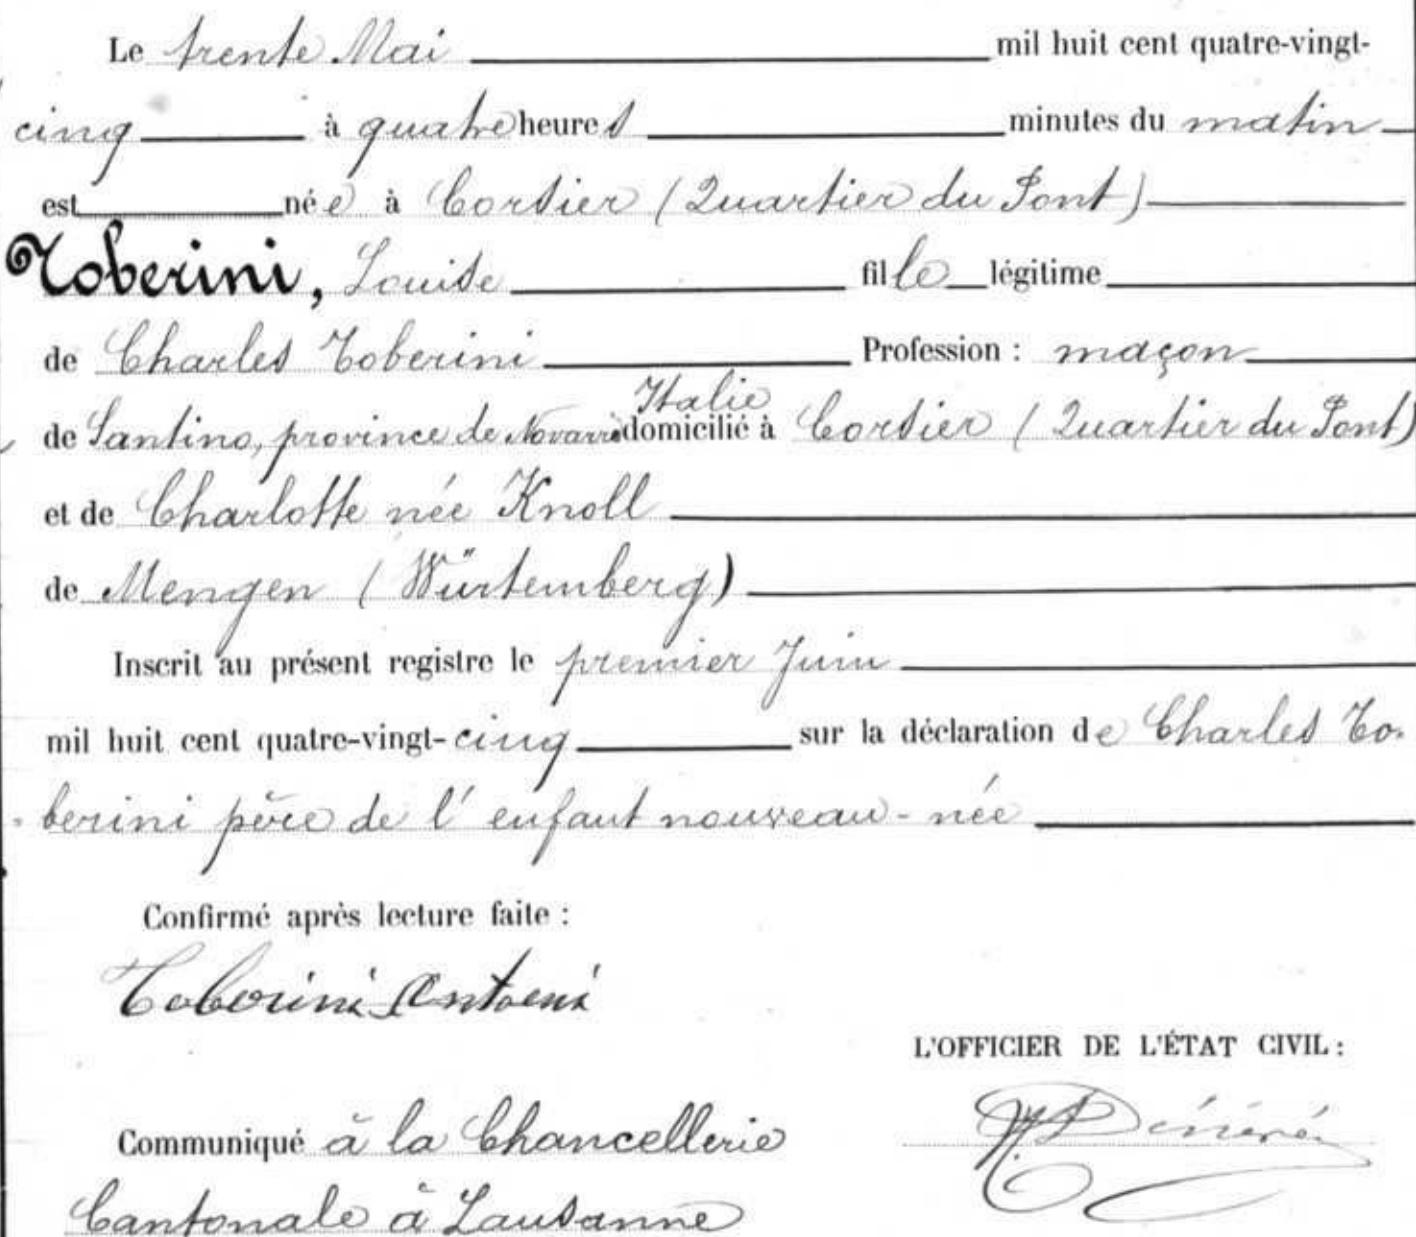 Le trente Mai mil huit cent quatre-vingt-
cinq à quatre heures minutes du matin
est née à Corsier (Quartier du Pont)
Toberini, Louise fille légitime
de Charles Toberini Profession : maçon
Italie
de Santino, province de Novarre domicilié à Corsier (Quartier du Pont)
et de Charlotte née Knoll
de Mengen (Würtemberg)
Inscrit au présent registre le premier Juin
mil huit cent quatre-vingt-cinq sur la déclaration de Charles To-
berini père de l'enfant nouveau-née
Confirmé après lecture faite :
Toberini Antoni
L'OFFICIER DE L'ÉTAT CIVIL :
Communiqué à la Chancellerie
Cantonale à Lausanne